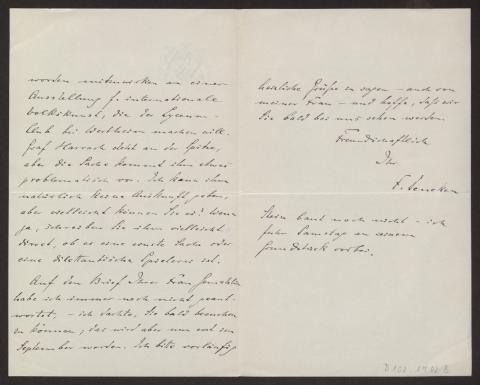 worden mitzuwirken an einer
Ausstellung f. internationale
Volkskunst, die der Lyceum-
Club bei Wertheim machen will.
Graf Harrach steht an der Spitze,
aber die Sache kommt ihm etwas
problematisch vor. Ich kann ihm
natürlich keine Auskunft geben,
aber vielleicht können Sie es? Wenn
ja, schreiben Sie ihm vielleicht
direct, ob es eine ernste Sache oder
eine dilettantische Spielerei sei.
Auf den Brief Ihrer Frau Gemahlin
habe ich immer noch nicht geant-
wortet, – ich dachte, Sie bald besuchen
zu können; das wird aber nun erst im
September werden. Ich bitte vorläufig
herzliche Grüße zu sagen – auch von
meiner Frau – und hoffe, daß wir
Sie bald bei uns sehen werden.
Freundschaftlich
Ihr
Stein baut noch nicht – ich
fuhr Samstag an seinem
Grundstück vorbei.